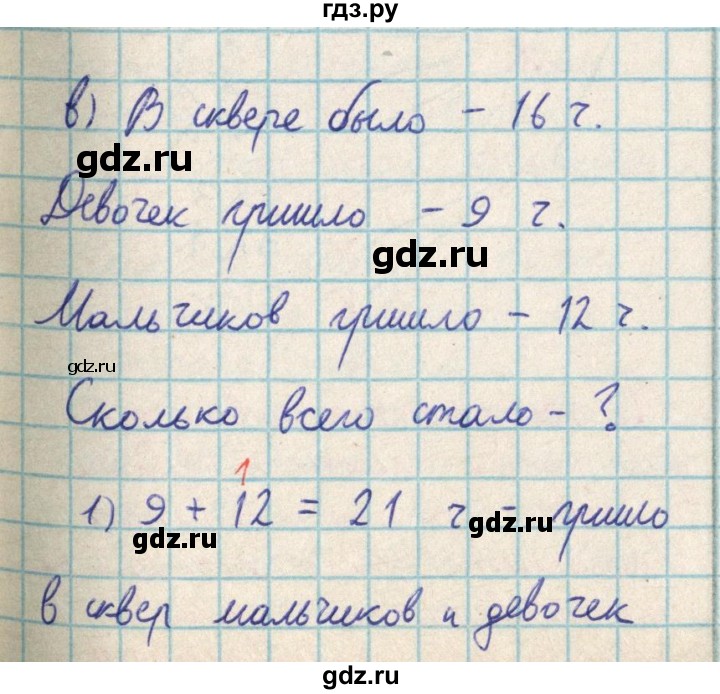 гдз.ру
в) В сквере было - 16 ч.
gdz.ru
Девочек пришло - 9 ч.
gdz.ru
Мальчиков пришло - 12 ч.
gdz.ru
Сколько всего стало - ?
1
1) 9 + 12 = 21 ч - пришло
gdz.ru gdz.ru
в сквер мальчиков и девочек
gdz.ru